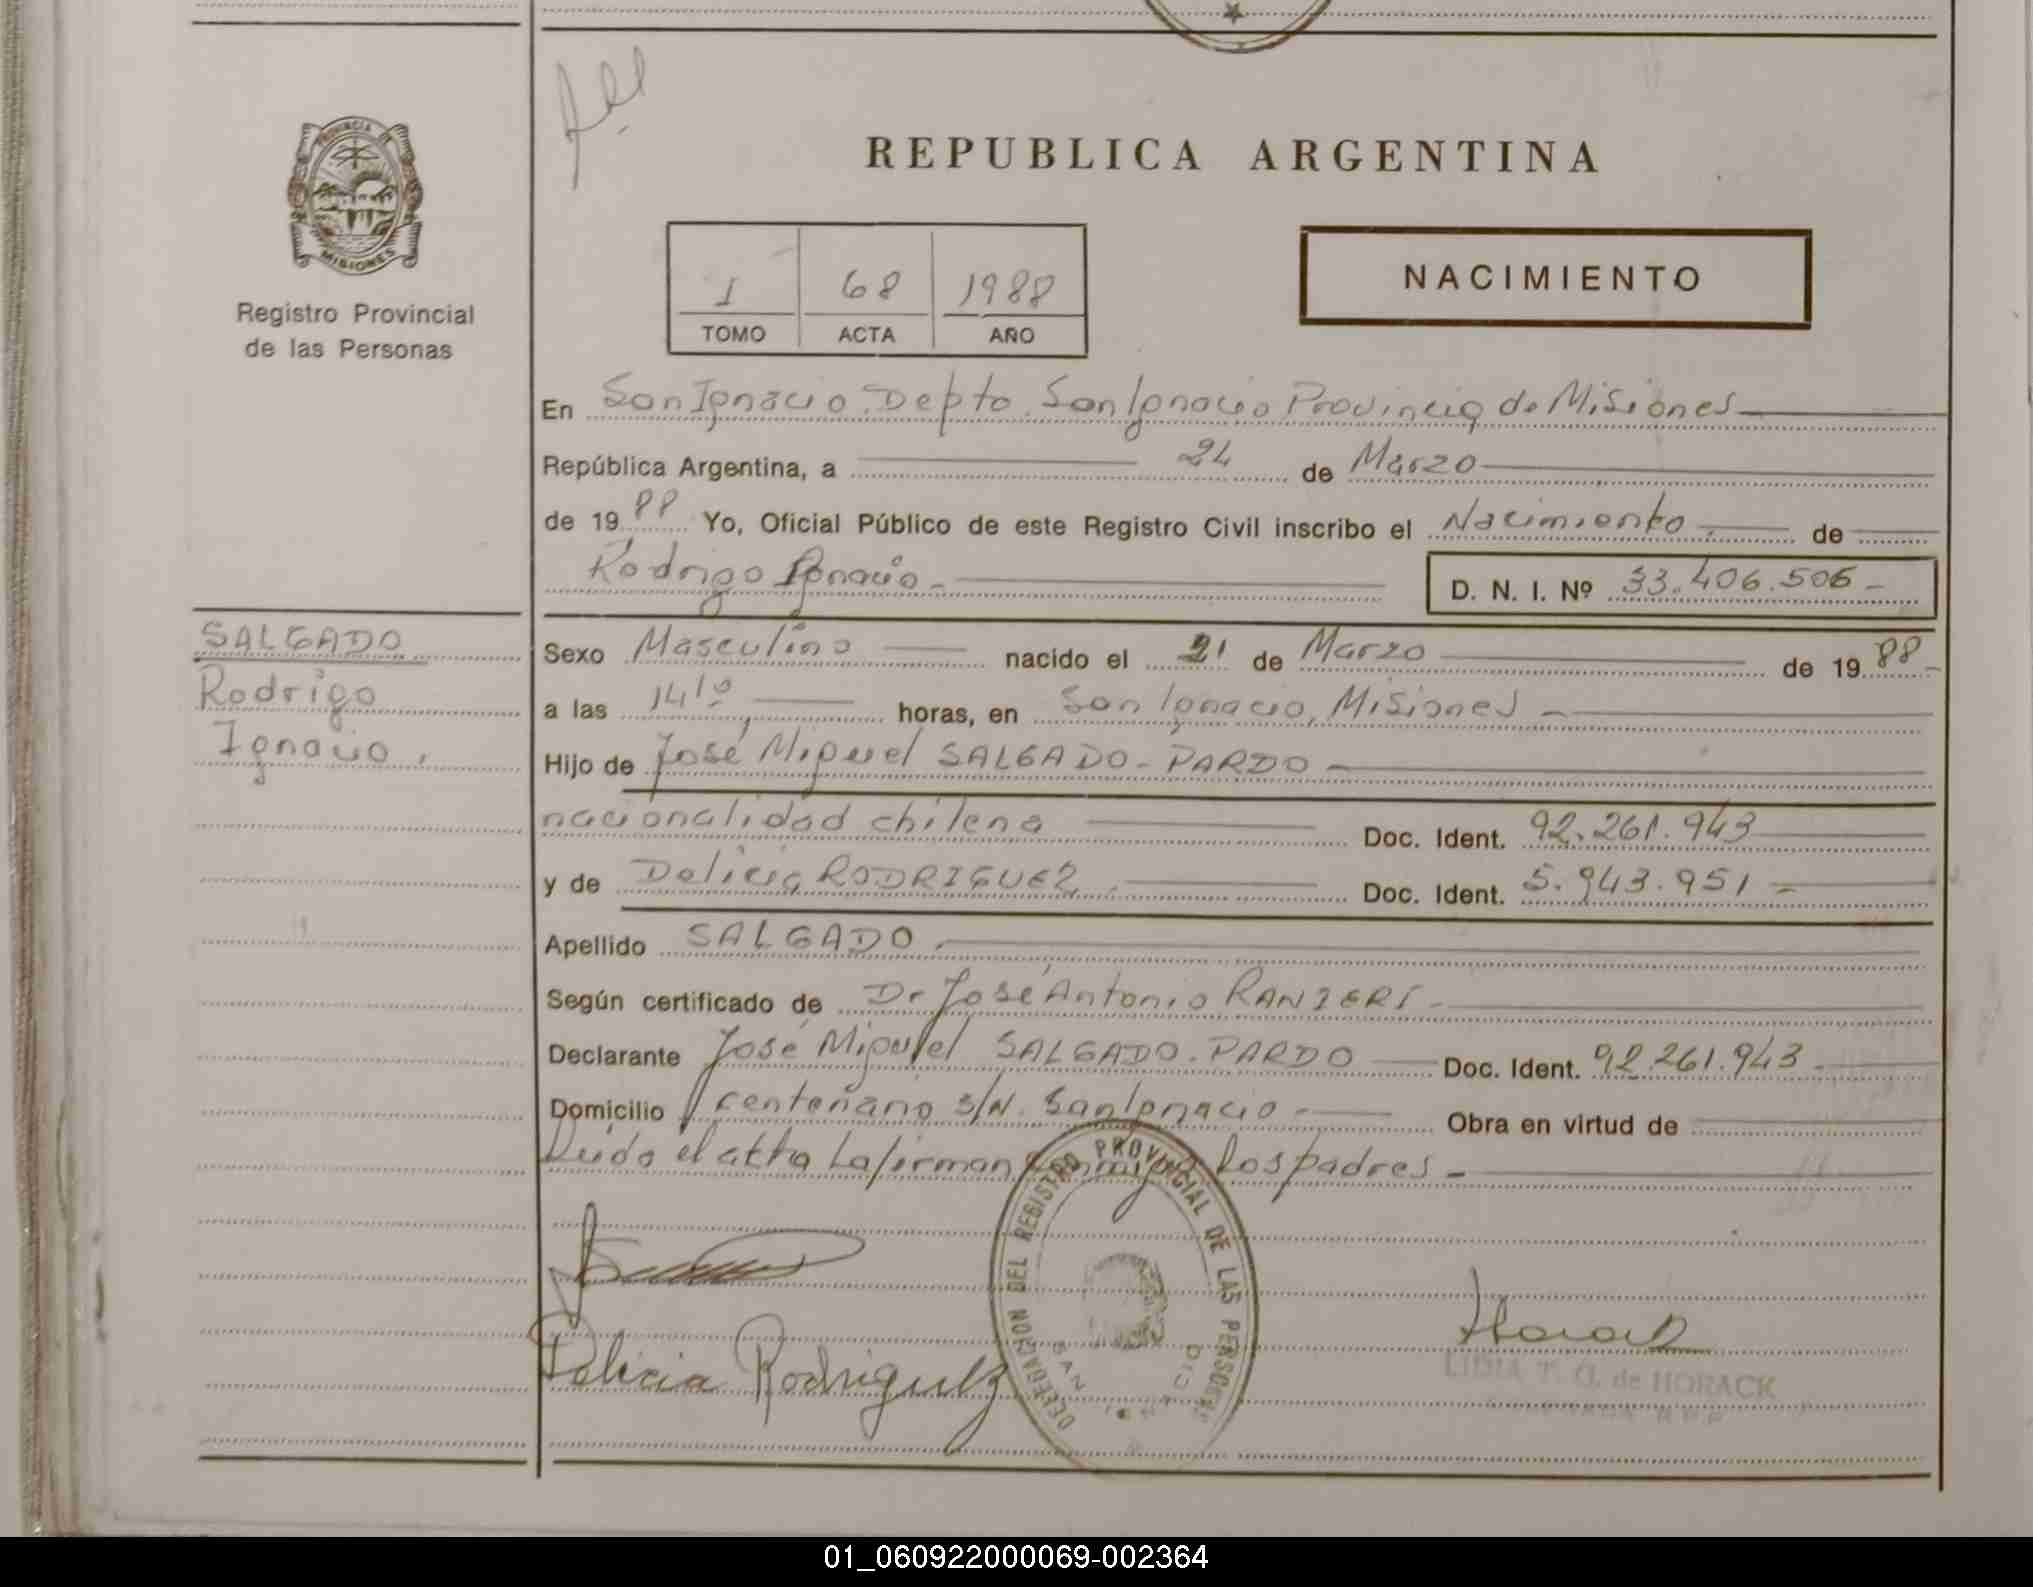 PROVINCIA DE
MISIONES
Registro Provincial
de las Personas
REPUBLICA ARGENTINA
NACIMIENTO
I 68 1988
TOMO ACTA AÑO
En San Ignacio. Depto. San Ignacio Provincia de Misiones
República Argentina, a 24 de Marzo
de 19 88 Yo, Oficial Público de este Registro Civil inscribo el Nacimiento de
Rodrigo Ignacio.- D. N. I. Nº 33.406.506-
SALGADO
Rodrigo
Ignacio.
Sexo Masculino nacido el 21 de Marzo de 19 88-
a las 14 10 horas, en San Ignacio, Misiones-
Hijo de José Miguel SALGADO-PARDO-
nacionalidad chilena Doc. Ident. 92.261.943
y de Delicia RODRIGUEZ Doc. Ident. 5.943.951-
Apellido SALGADO.
Según certificado de Dr José Antonio RANIERI-
Declarante José Miguel SALGADO-PARDO Doc. Ident. 92.261.943-
Domicilio centenario s/N. San Ignacio- Obra en virtud de
Leido el acta La firman conmigo Los padres-
DELEGACION DEL REGISTRO PROVINCIAL DE LAS PERSONAS
SAN IGNACIO
Delicia Rodriguez
Horack
LIDIA T. G. de HORACK
01_060922000069-002364